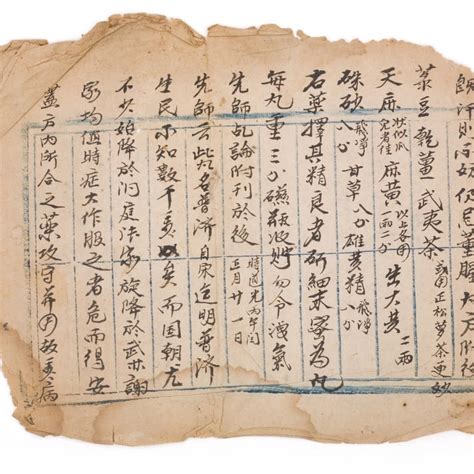 汗則不妨仍忌葷腥
菉豆 乾薑 武夷茶 或用正松蘿茶更妙
天麻 狀似瓜兒者佳 麻黃 以上各用一兩二 生大黃 二兩
硃砂 飛淨八分 甘草 八分 雄黃精 飛淨八分
右藥擇其精良者研細末蜜為丸
每丸重三分磁瓶收貯勿令洩氣
先師乩論附刊於後 時道光丙午閏正月廿一日
先師云此名普濟自宋迄明普濟
生民不知數千矣而國朝尤
不少始降於洞庭法家旋降於武林謝
家均值時症大作服之者危而得安
蓋方內所合之藥攻守並用故主病